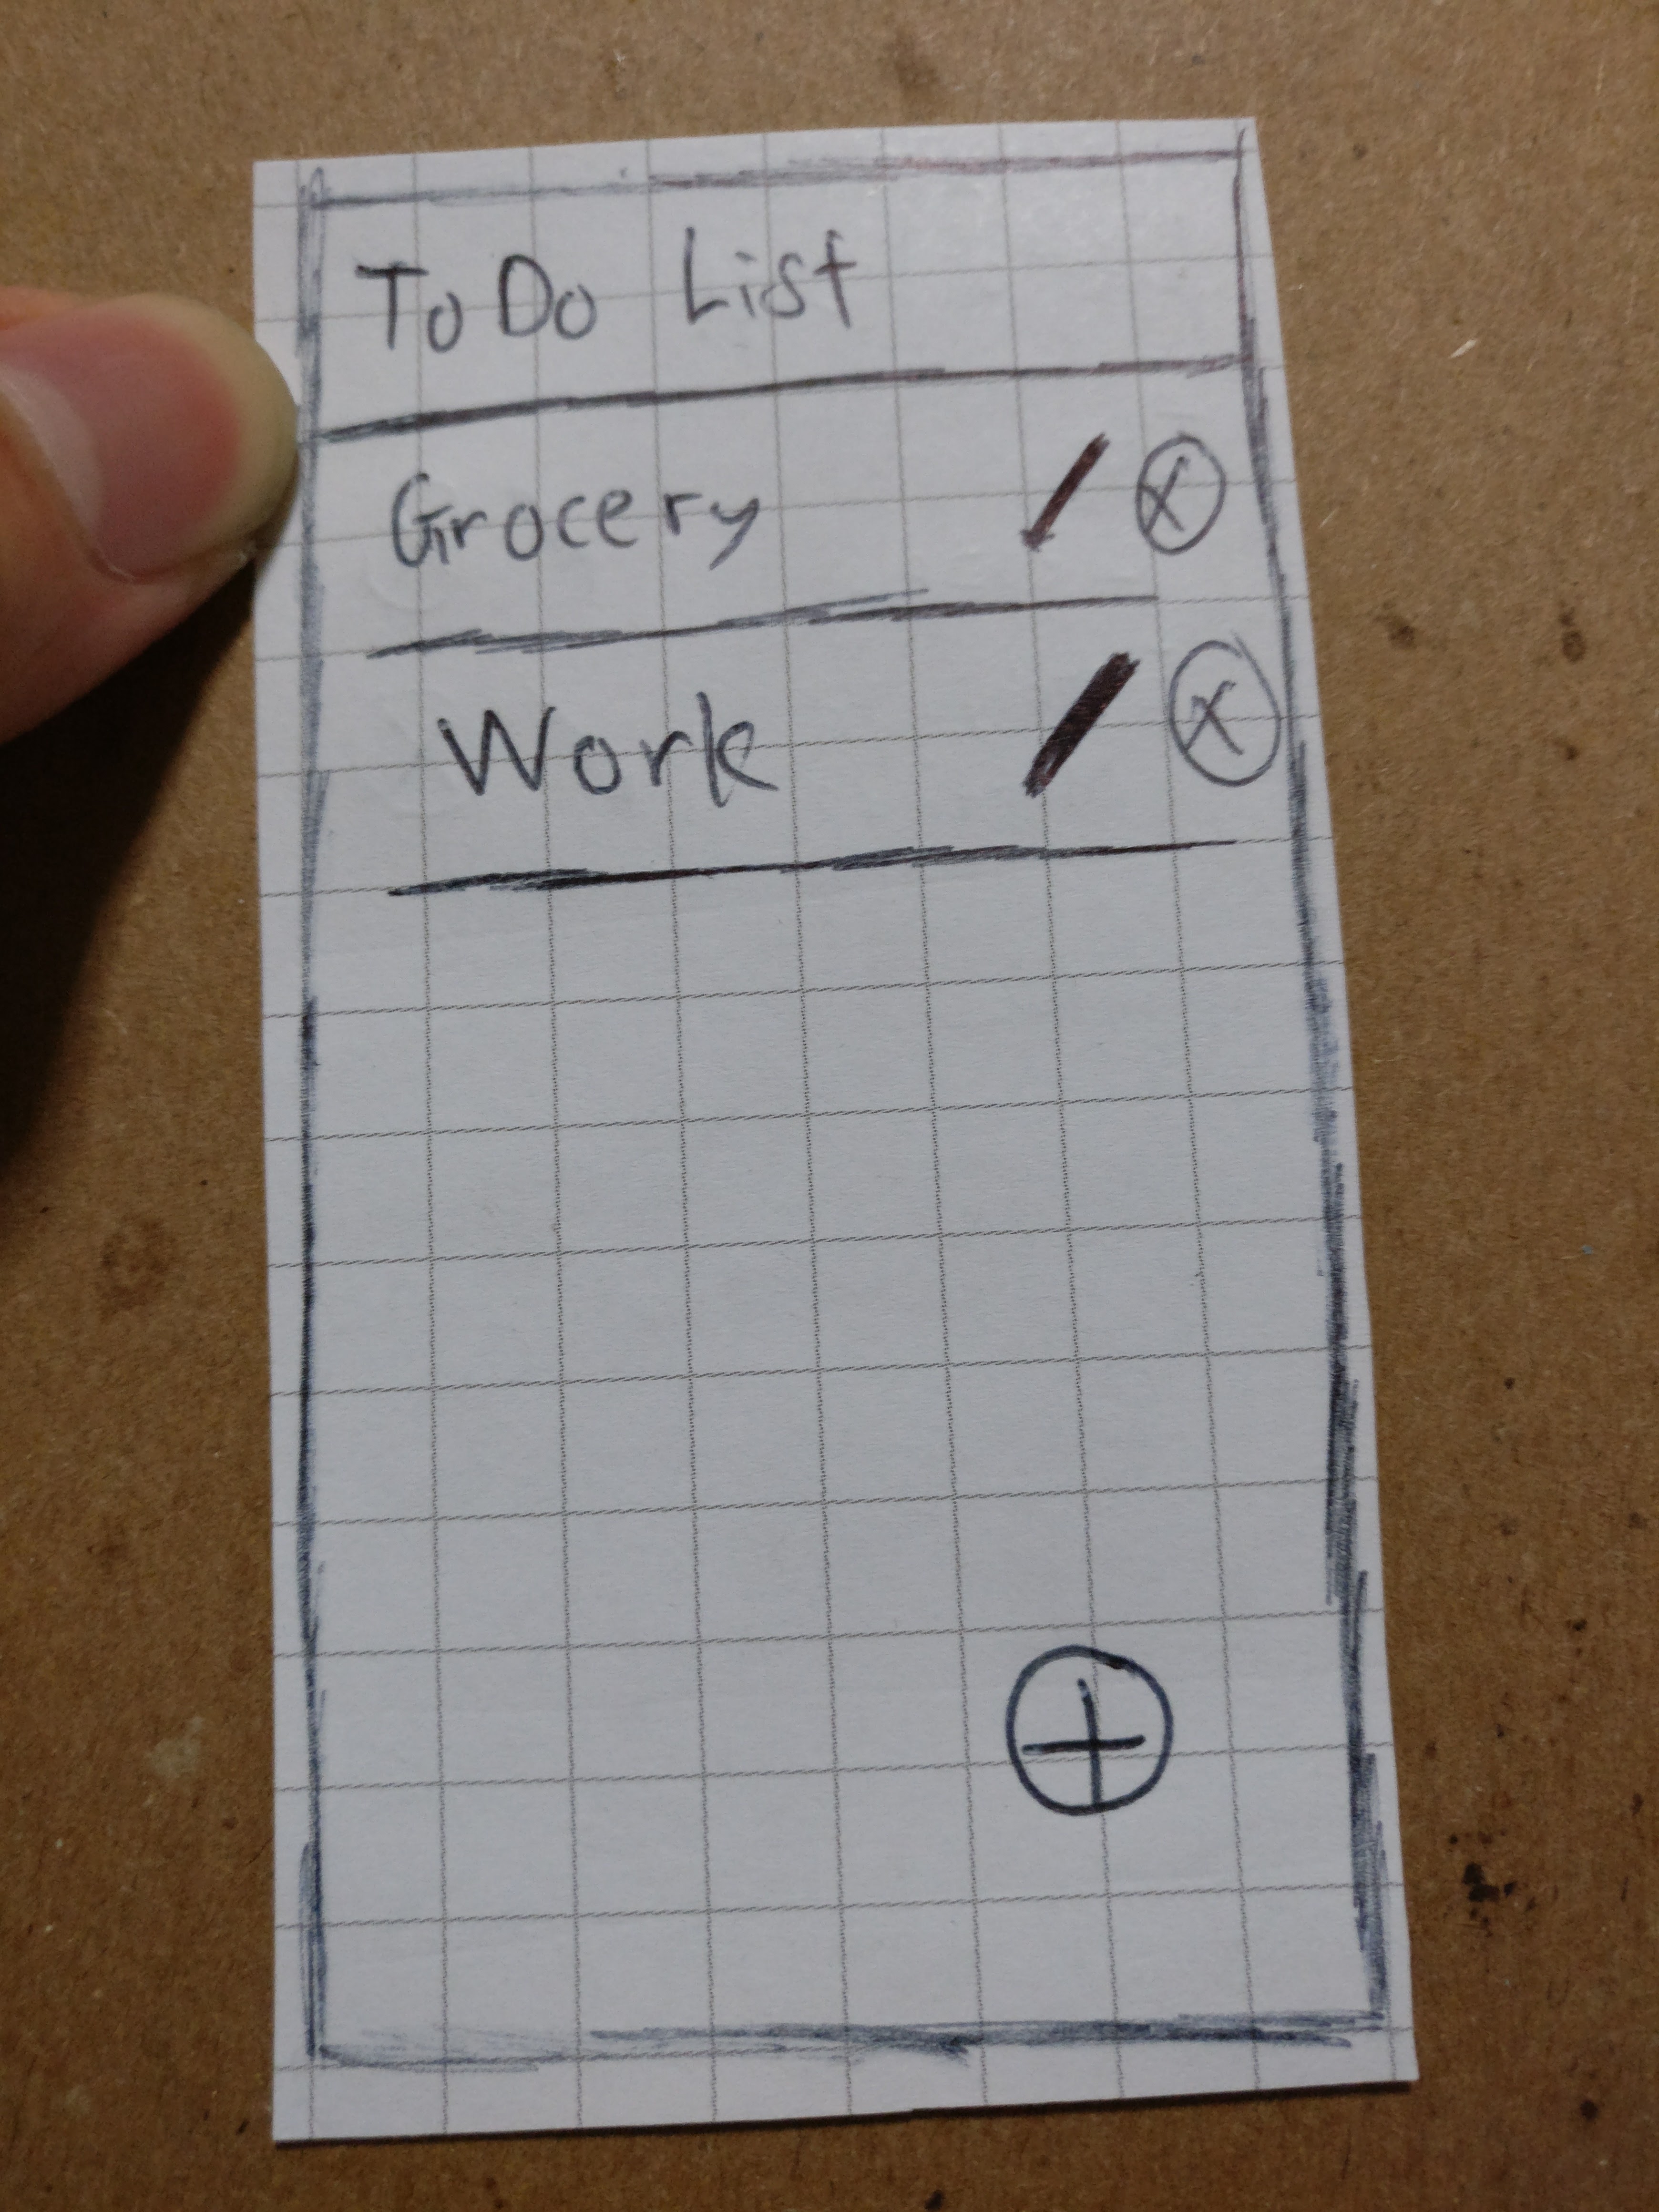 To Do List
Grocery
Work